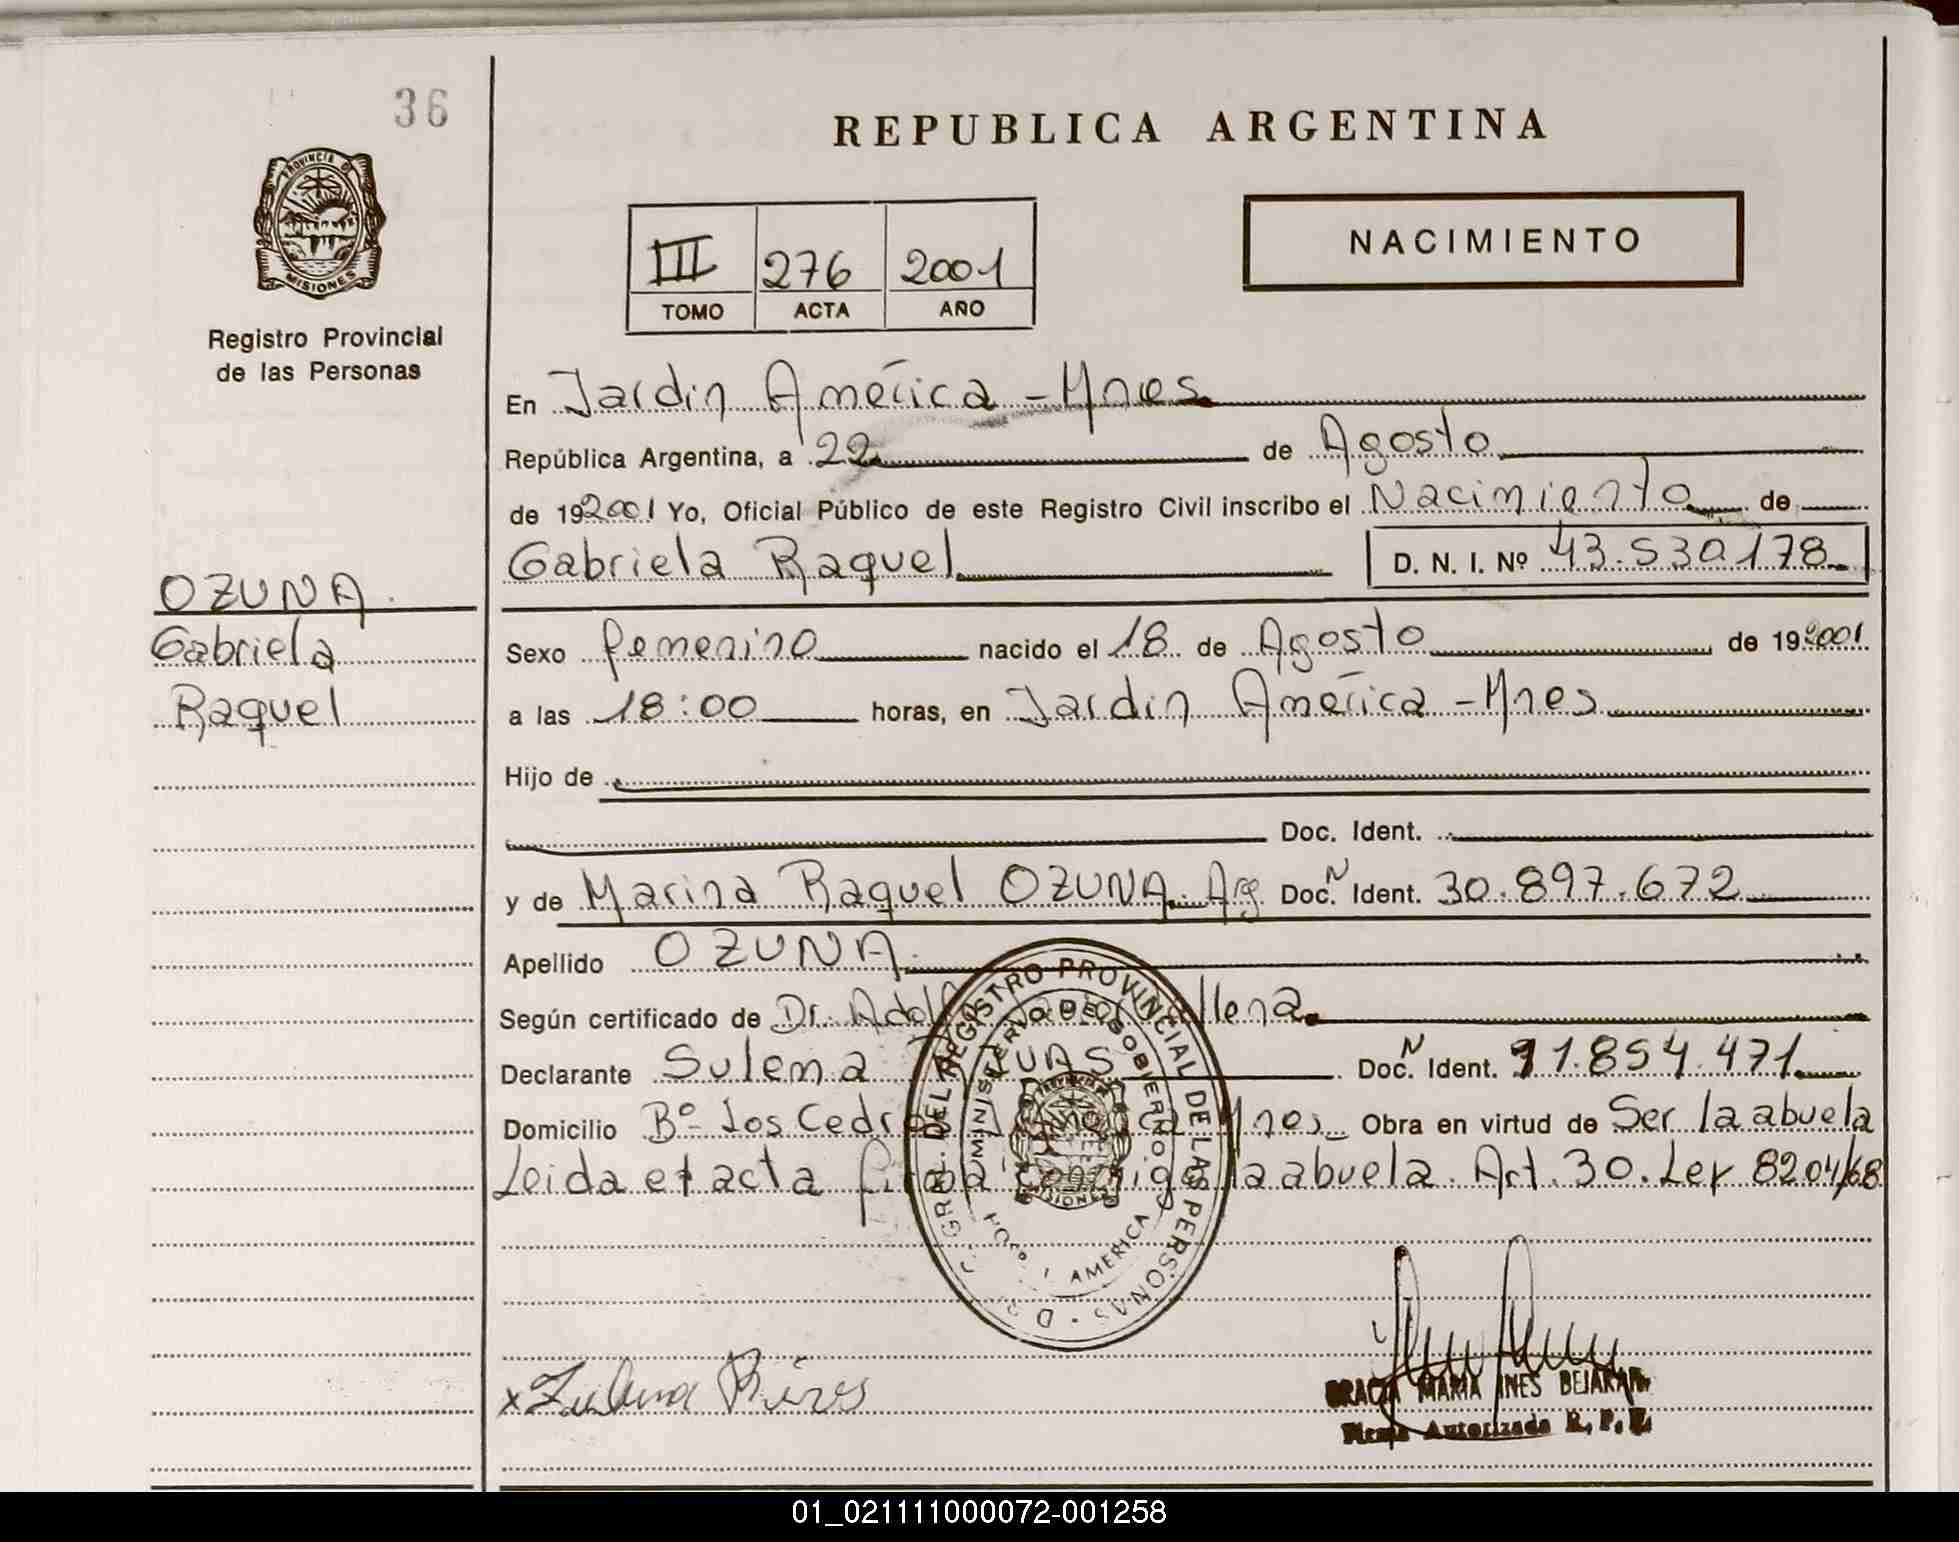 36
REPUBLICA ARGENTINA
PROVINCIA DE
MISIONES
Registro Provincial
de las Personas
III 276 2001
TOMO ACTA AÑO
NACIMIENTO
En Jardin América - Mnes
República Argentina, a 22 de Agosto
de 192001 Yo, Oficial Público de este Registro Civil inscribo el Nacimiento de
Gabriela Raquel D. N. I. Nº 43.530.178
OZUNA.
Gabriela
Raquel
Sexo femenino nacido el 18 de Agosto de 192001
a las 18:00 horas, en Jardin América - Mnes
Hijo de
Doc. Ident.
y de Marina Raquel OZUNA. Arg Doc. N Ident. 30.897.672
Apellido OZUNA.
Según certificado de Dr.
Declarante Sulema Doc. N Ident. 11.854.471
Domicilio Bº Los Mnes Obra en virtud de Ser la abuela
Leida el acta firma conmigo la abuela. Art. 30. Ley 8204/68
DEL REGISTRO PROVINCIAL DE LAS PERSONAS
MINISTERIO DE GOBIERNO
AMERICA
MISIONES
GRACIA MARIA INES
Firma Autorizada R. P. P.
01_021111000072-001258